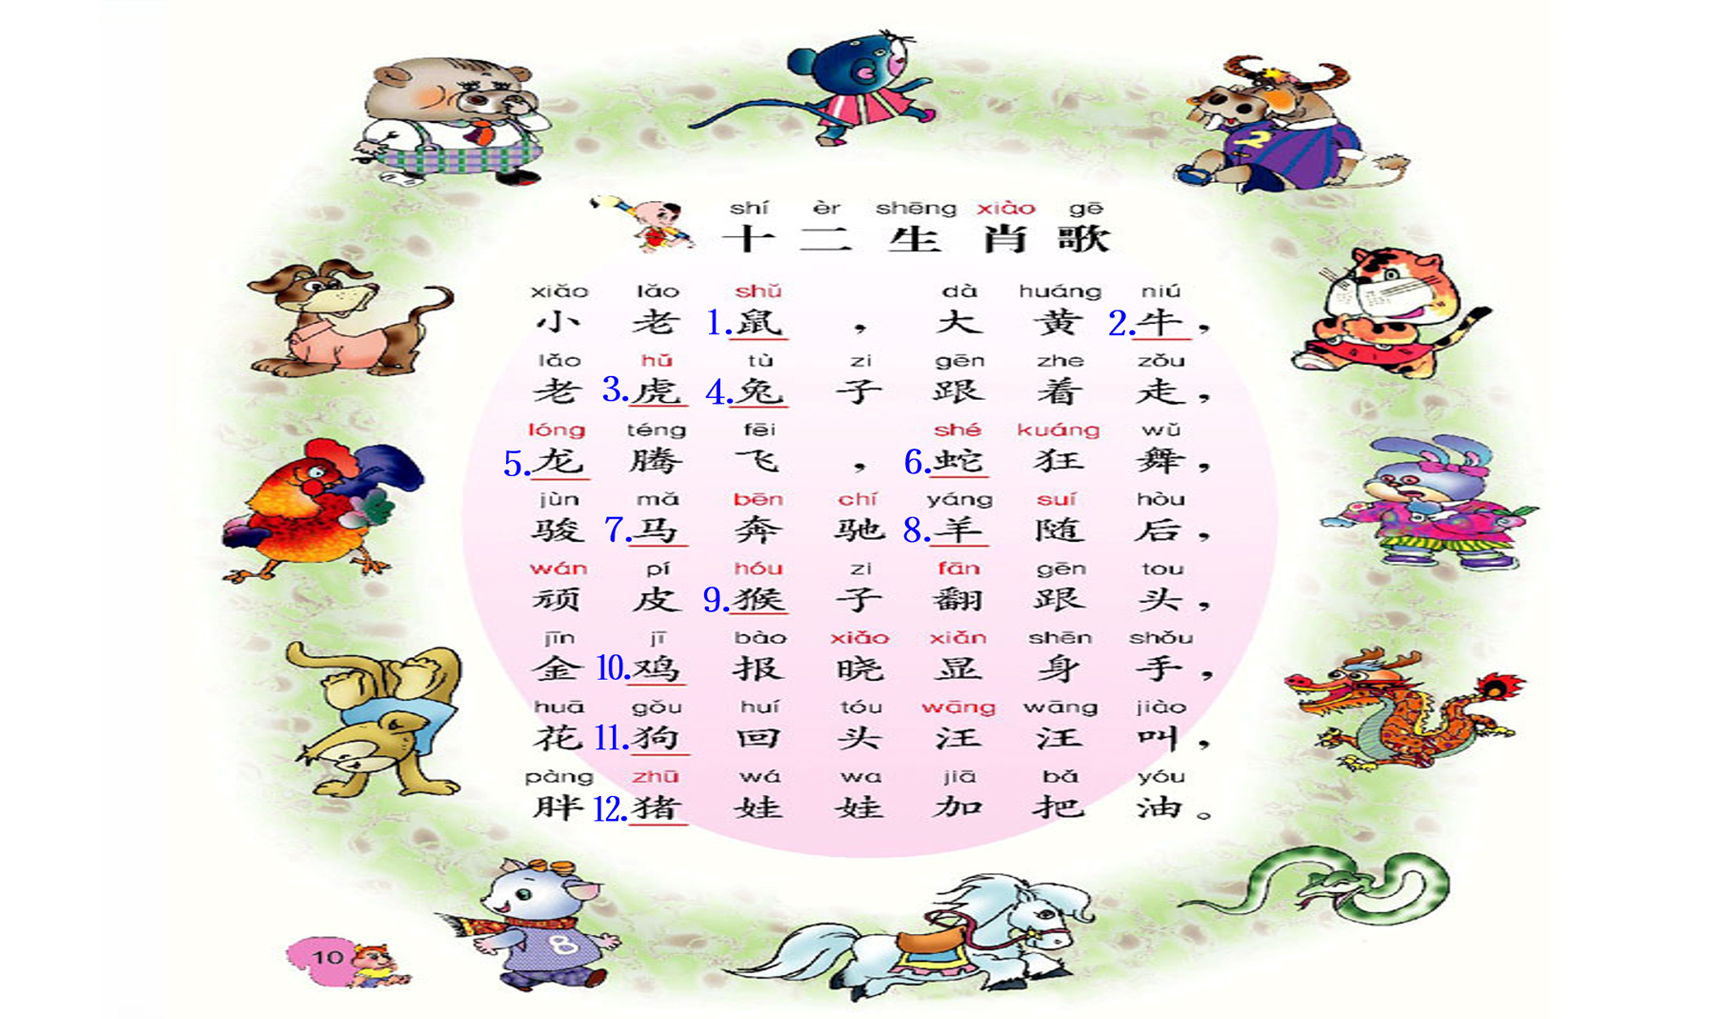 shí èr shēng xiào gē
十二生肖歌
xiǎo lǎo shǔ dà huáng niú
小老1.鼠，大黄2.牛，
lǎo hǔ tù zi gēn zhe zǒu
老3.虎4.兔子跟着走，
lóng téng fēi shé kuáng wǔ
5.龙腾飞，6.蛇狂舞，
jùn mǎ bēn chí yáng suí hòu
骏7.马奔驰8.羊随后，
wán pí hóu zi fān gēn tou
顽皮9.猴子翻跟头，
jīn jī bào xiǎo xiǎn shēn shǒu
金10.鸡报晓显身手，
huā gǒu huí tóu wāng wāng jiào
花11.狗回头汪汪叫，
pàng zhū wá wa jiā bǎ yóu
胖12.猪娃娃加把油。
2
8
10